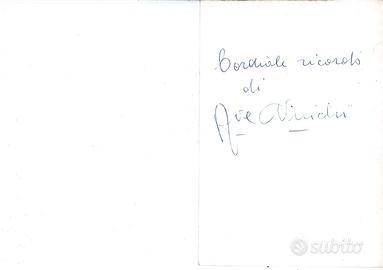 Cordiale ricordo
di
Ave Ninchi
subito